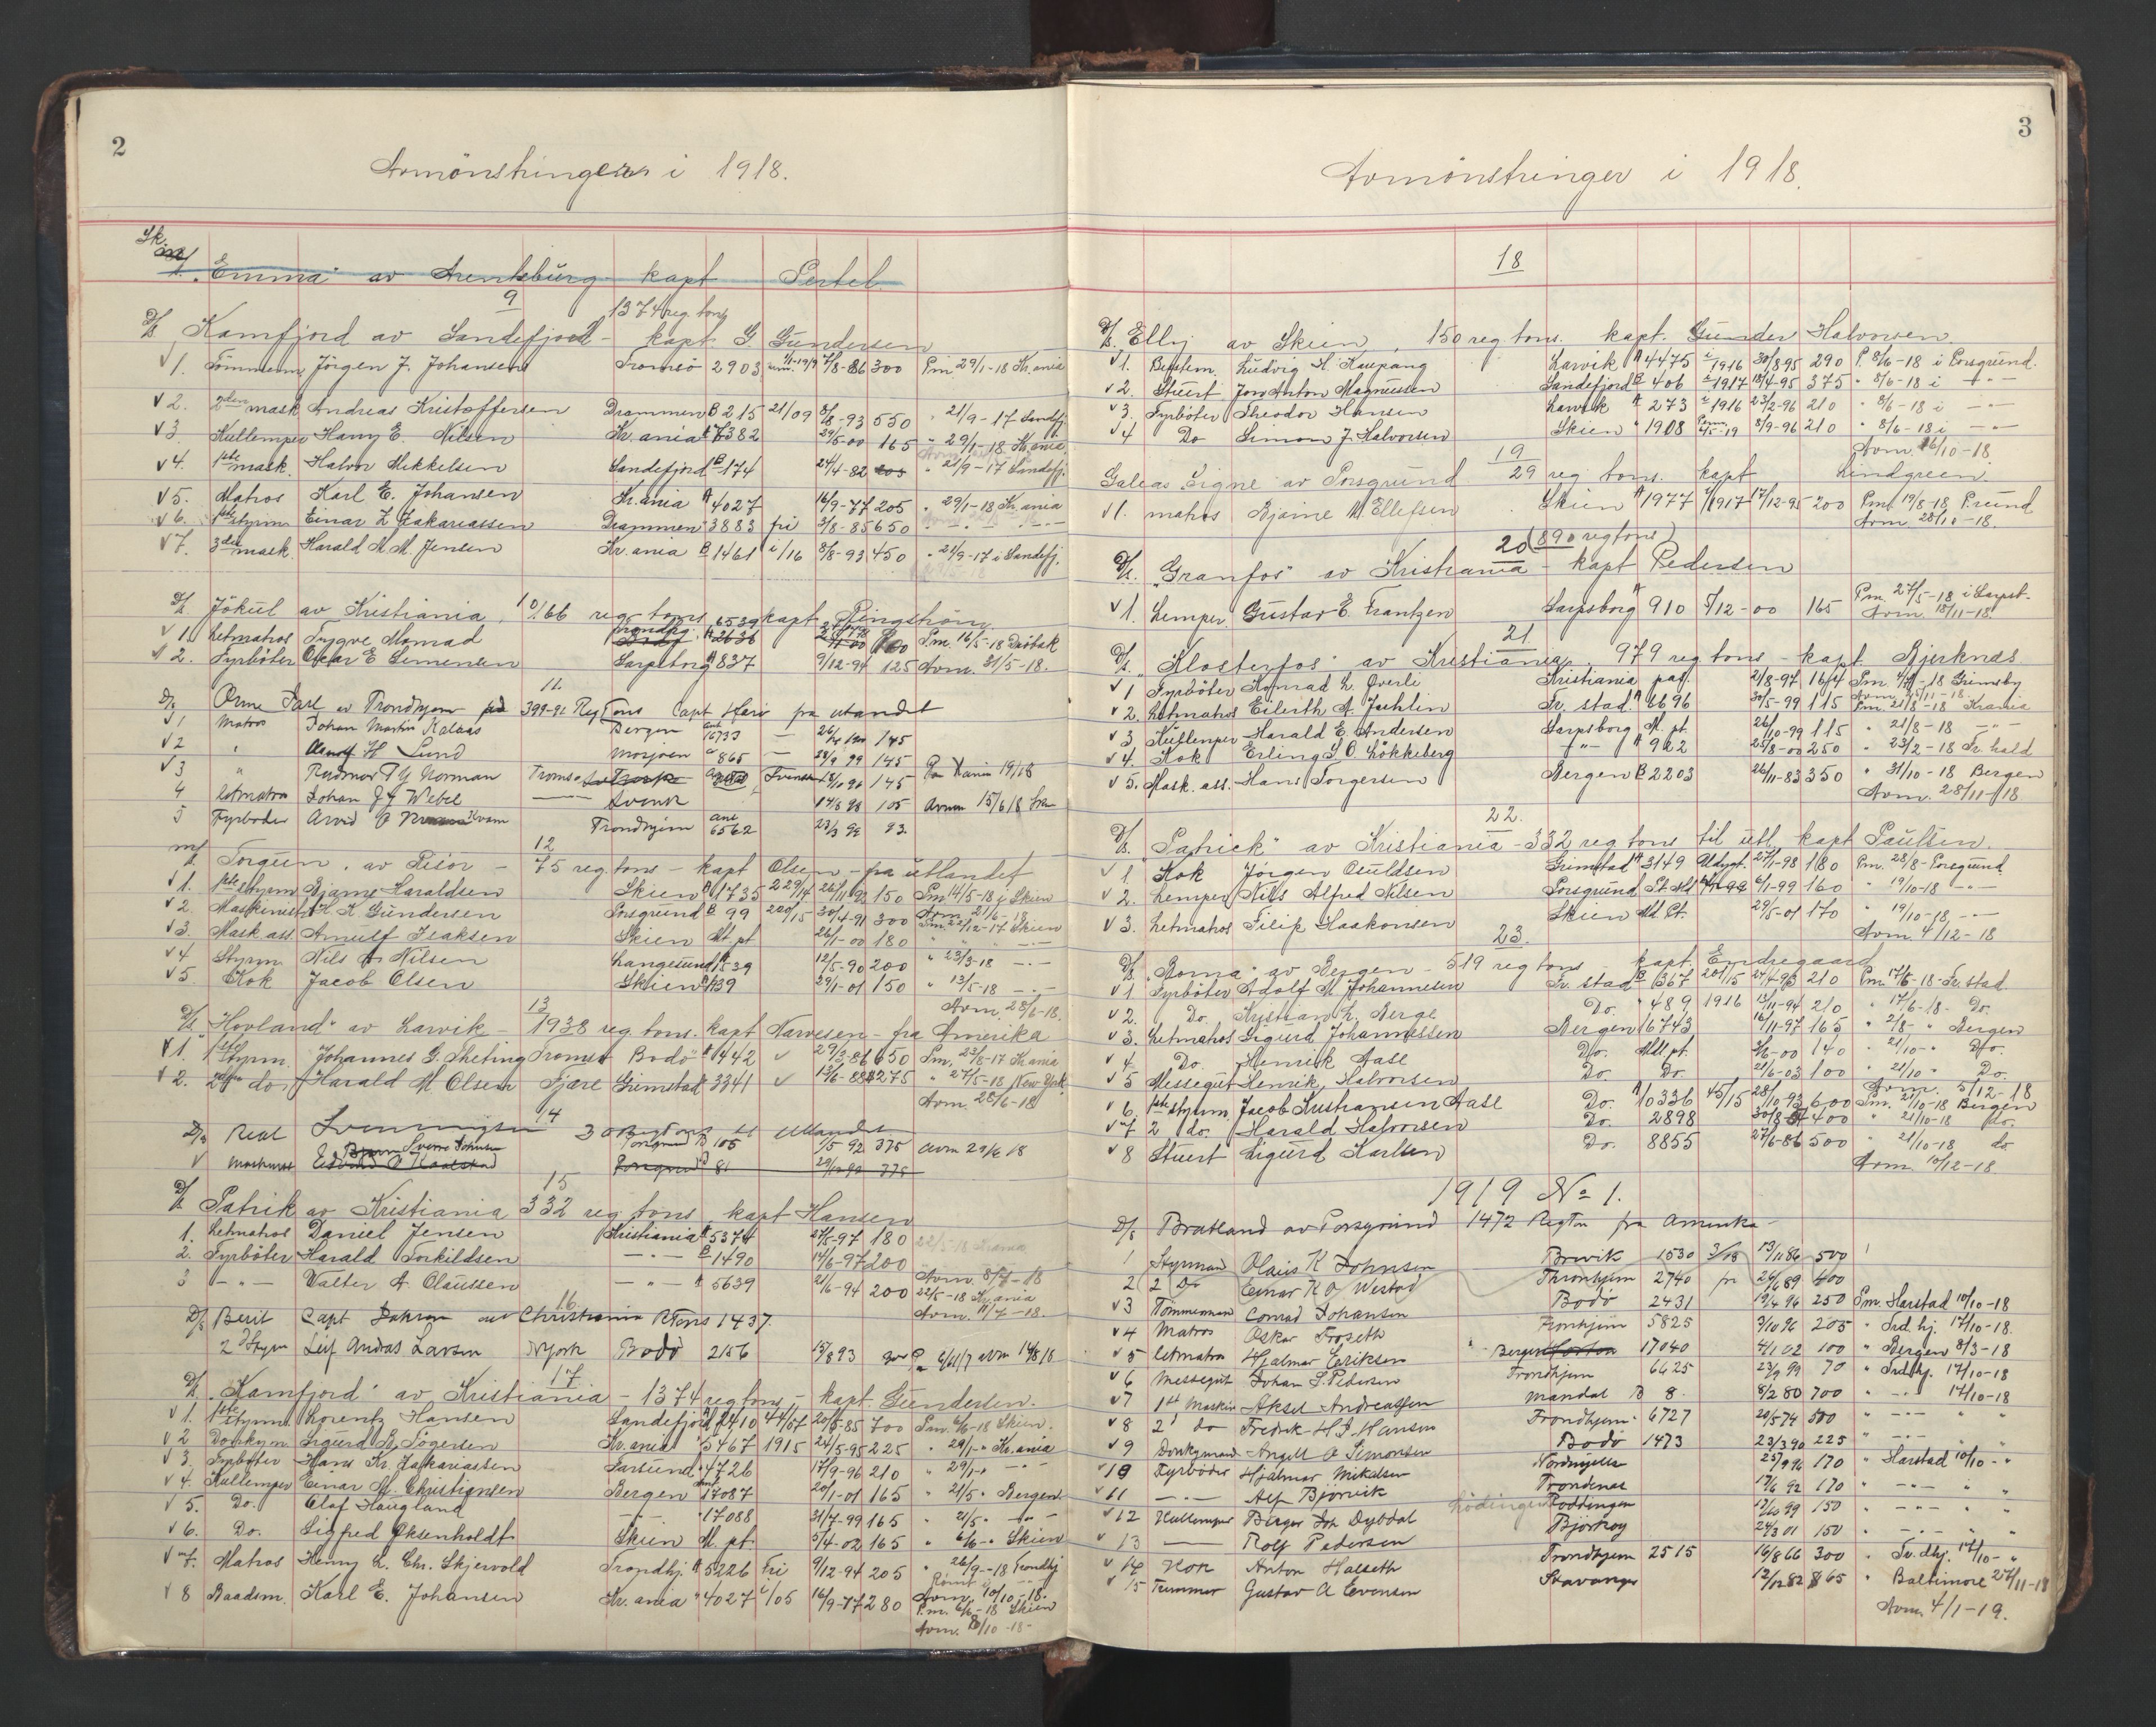 2
Avmönstringer i 1918.
Sk. "Emma" av Arensburg kapt Pertel
9
D/S Kamfjord av Sandefjord - 1374 reg tons kapt G. Gundersen
1. Tömmerm. Jörgen J. Johansen Tromsö 2903 7/8-86 300 Pm 29/1-18 Kr.ania
2. 2den mask Andreas Kristoffersen Drammen B 215 21/09 8/8-93 550 " 21/9-17 Sandefj.
3. Kullemper Harry E. Nilsen Kr.ania A 7382 29/5-00 165 " 29/1-18 Kr.ania
4. 1ste mask. Halvor Mikkelsen Sandefjord B 174 24/4-82 " 21/9-17 Sandefj.
5. Matros Karl E. Johansen Kr.ania A 4027 16/9-77 205 " 29/1-18 Kr.ania
6. 1ste styrm Einar Z Zakariassen Drammen " 3883 fri 3/8-85 650 " - " -
7. 3die mask. Harald M. M. Jensen Kr.ania B 1461 i/16 8/8-93 450 " 21/9-17 i Sandefj.
10
D/S Jökul av Kristiania, 166 reg tons kapt Ringström
1. Letmatros Trygve Monrad 6539 Pm. 16/5-18 Dröbak
2. Fyrböter Oskar E Simensen Sarpsborg A 837 9/12-94 125 Avm. 31/5-18.
11.
D/S Orm Jarl av Trondhjem 399-91 Reg Tons Capt fra utandet
1 Matros Johan Martin Kalaas Bergen 16733 - 145
2 " H Lund Mosjøen 865 - 28/9 99 145
3 " Norman Tromsø 145 Kania 19/18
4 Letmatros Johan J F Webel - Svensk 14/8 98 105 Avm 15/6 18
5 Fyrbøder Arvid O Kvam Trondhjem 6562 23/3 99 93.
12
M/S Torgun. av Risör - 75 reg tons - kapt Olsen - fra utlandet
1. 1ste styrm Bjarne Haraldsen Skien A 1735 229/14 26/11-92 150 Pm 14/5-18 i Skien
2. Maskinist H. K Gundersen Porsgrund B 99 200/15 30/4-91 300 Avm. 21/6-18
3. Mask ass. Arnulf Isaksen Skien Mt pt 26/1-00 180 Pm. 22/12-17 Skien
4 Styrm Nils A Nilsen Langesund A 1539 12/5-90 200 " 23/3-18 - " -
5. Kok Jacob Olsen Skien A 139 29/1-01 150 " 13/5-18 - " -
Avm. 28/6-18.
13
D/S "Hovland" av Larvik - 1938 reg tons. kapt Narvesen - fra Amerika
1. 1ste Styrm. Johannes G. Tromsö Bodö A 1442 29/3-86 650 Pm. 23/8-17 Kr.ania
2. 2den do Harald M Olsen Fjære Grimstad A 3341 13/6-88 275 " 27/5-18 New York
Avm. 28/6-18
14
D/S Real Svenningsen 30 Regtons til Utlandet
Bjarn Sverre Johnsen Porsgrund B 105 1/5 92 375 Avm 29/6 18
Maskinist Edvard Porsgrund B 81 29/10 99 375
15
D/S Patrik av Kristiania 332 reg tons kapt Hansen
1. Letmatros Daniel Jensen Kristiania A 5374 27/5-97 180 22/5-18 Krania
2. Fyrböter Harald Torkildsen - " - B 1490 14/6-97 200 Avm. 8/7-18
3 - " - Walter A. Olaussen - " - A 5639 21/6-94 200 22/5-18 Kr.ania
Avm. 11/7-18.
16.
D/S Berit Capt Johnsen av Christiania RTons 1437.
2d Styrm Leif Andras Larsen NYork Bodö 2156 15/8 93 avm 14/8 18
17
D/S "Kamfjord" av Kristiania - 1374 reg tons - kapt. Gundersen.
1. 1ste styrm. Lorentz Hansen Sandefjord A 2410 44/07 20/8-85 700 Pm. 6/6-18 Skien.
2 Donkym. Sigurd B. Jögersen Kr.ania " 5467 1915 24/5-95 225 " 29/1- " Kr.ania
3. Fyrböter Hans Kr. Zakariassen Farsund " 4726 17/9-96 210 " 29/1- " - " -
4. Kullemper Einar M. Christiansen Bergen 17087 20/1-01 165 " 21/5 " Bergen.
5. Do. Olaf Haugland - " - " 17088 21/7-99 165 " 21/5 " - " -
6. Do. Sigfred Oksenholdt Skien M. pt. 5/4-02 165 " 6/6- " Skien
7. Matros Henry L. Chr. Skjervold Trondhj. A 5226 Fri 9/12-94 205 " 26/9-18 Trondhj
Römt Avm. 10/10-18.
8 Baadsm. Karl E. Johansen Kr.ania " 4027 i/05 16/9-77 280 Pm. 6/6-18 Skien
Avm. 10/10-18-
3
Avmönstringer i 1918.
18
D/S. Elly av Skien, 150 reg tons. kapt. Gunder Halvorsen.
1. Bestem. Ludvig H. Kaupang Larvik A 4475 i 1916 30/8-95 290 P. 8/6-18 i Porsgrund.
2. Stuert Jon Anton Magnussen Sandefjord B 406 i 1917 18/4-95 375 " 8/6-18 i - " -
3. Fyrböter Theodor Hansen Larvik A 273 i 1916 23/2-96 210 " 8/6-18 i - " -
4 Do Simon J. Halvorsen Skien " 1908 8/9-96 210 " 8/6-18 i - " -
Avm. 16/10-18
19
Galeas "Signe" av Porsgrund 29 reg tons. kapt Lindgreen.
1. matros Bjarne M Ellefsen Skien A 1977 i/1917 17/12-95 200 Pm. 19/8-18 P.rund
Avm 28/10-18.
20 (890 reg tons)
D/S. "Granfos" av Kristiania - kapt Pedersen
1. Lemper Gustav E. Frantzen Sarpsborg A 910 7/12-00 165 Pm. 27/5-18 i Sarpsb.
Avm. 18/11-18.
21.
D/S. "Klosterfos" av Kristiania, 979 reg tons - kapt. Bjerknes
1 Fyrböter Konrad L. Överli Kristiania pas. 21/8-97 Grimsby
2. Letmatros Eilerth A. Fr.stad. A 6696 30/5-99 115 Pm. 21/8-18 Krania
3 Kullemper Harald E. Andersen Sarpsborg M. pt. 26/10-99 115 " 21/8-18 - " -
4. Kok Erling S. O. Lökkeberg - " - A 922 25/8-00 250 " 23/2-18 Fr.hald
5. Mask. ass. Hans Torgersen Bergen B 2203 26/11-83 350 " 31/10-18 Bergen
Avm. 28/11-18
22.
D/S. "Patrick" av Kristiania - 332 reg tons til utl. kapt Paulsen.
1 Kok Jörgen Osuldsen Grimstad A 3149 Utdygt. 27/1-98 180 Pm. 23/8- Porsgrund
2. Lemper Nils Alfred Nilsen Porsgrund 6/1-99 160 " 19/10-18 - " -
3. Letmatros Filip Haakonsen Skien Md Pt. 29/5-01 170 " 19/10-18 - " -
Avm. 4/12-18
23.
D/S "Roma" av Bergen - 519 reg tons kapt. Endregaard
1 Fyrböter Adolf M Johannesen Fr. stad B 367 201/15 210 Pm. 17/6-18- Fr.stad
2. Do. Kristian L. Berge Do. " 489 1916 13/11-94 210 " 17/6-18- Do.
3. Letmatros Sigurd Johannessen Bergen 16743 16/11-97 165 " 2/8- " Bergen
4. Do. Henrik Aase Do. Mdl pt. 3/6-00 140 " 21/10- " Do.
5 Messegut Henrik Halvorsen Do. Do. 21/6-03 100 " 21/10 " Do.
Avm. 5/12-18
6. 1ste styrm. Jacob Kristiansen Aase Do. A 10336 45/15 28/10-93 600 Pm. 21/10-18 Bergen
7 2 do. Harald Halvorsen Do. 2898 400 " 21/10-18 do.
8 Stuert Sigurd Karlsen Do. 8855 27/6-86 500 " 21/10-18 do
Avm. 10/12-18
1919 No 1.
D/S Bratland av Porsgrund 1472 RegTn fra Amerika -
1 Styrmand Olaus K Johnsen Brevik 1530 3/18 13/11 86 500
2 2 Do Einar K O Westad Thronhjem 2740 fr 24/6 89 400
3 Tömmerman Conrad Johansen Bodö 2431 19/4 96 250 Pm. Harstad 10/10-18
4 Matros Oskar Froseth Tronhjem 5825 3/10 96 205 " Trd.hj. 17/10-18.
5 Letmatros Hjalmar Eriksen Bergen 17040 4/1 02 100 " Bergen 8/3-18
6 Messegut Johan S. Pedersen Trondhjem 6625 23/9 99 70 " Trdhj. 17/10-18
7 1st Maskin Aksel Andreassen Mandal B 8. 8/2 80 700 " - " - 17/10-18
8 2' do Fredrik H. J. Hansen Trondhjem. 6727 20/5 74 500 " - " - " "
9 Donkymand Angell O Simonsen Bodö 1473 23/3 90 225 " - " - " "
10 Fyrböder Hjalmar Mikalsen 23/9 96 170 " Harstad 10/10- "
11 - " - Alf Bjørvik Trondenes 17/6 92 170 " - " - " "
12 Kullemper Birger Joh Dybdal Lödingen 150 " - " - " "
13 - " - Rolf Pedersen 24/3 01 150 " - " - " "
14 Kok Anton Halseth Trondhjem 2515 16/8 66 300 " Tr.dhj. 17/10- "
15 Trimmer Gustav A Evensen Stavanger 12/12 82 " Baltimore 27/11-18
Avm. 4/1-19.